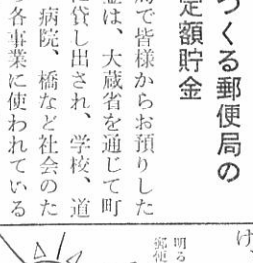 つくる郵便局の
定額貯金
局で皆様からお預りした
金は、大蔵省を通じて町
に貸し出され、学校、道
病院、橋など社会のた
各事業に使われている
け、
明る
郵便